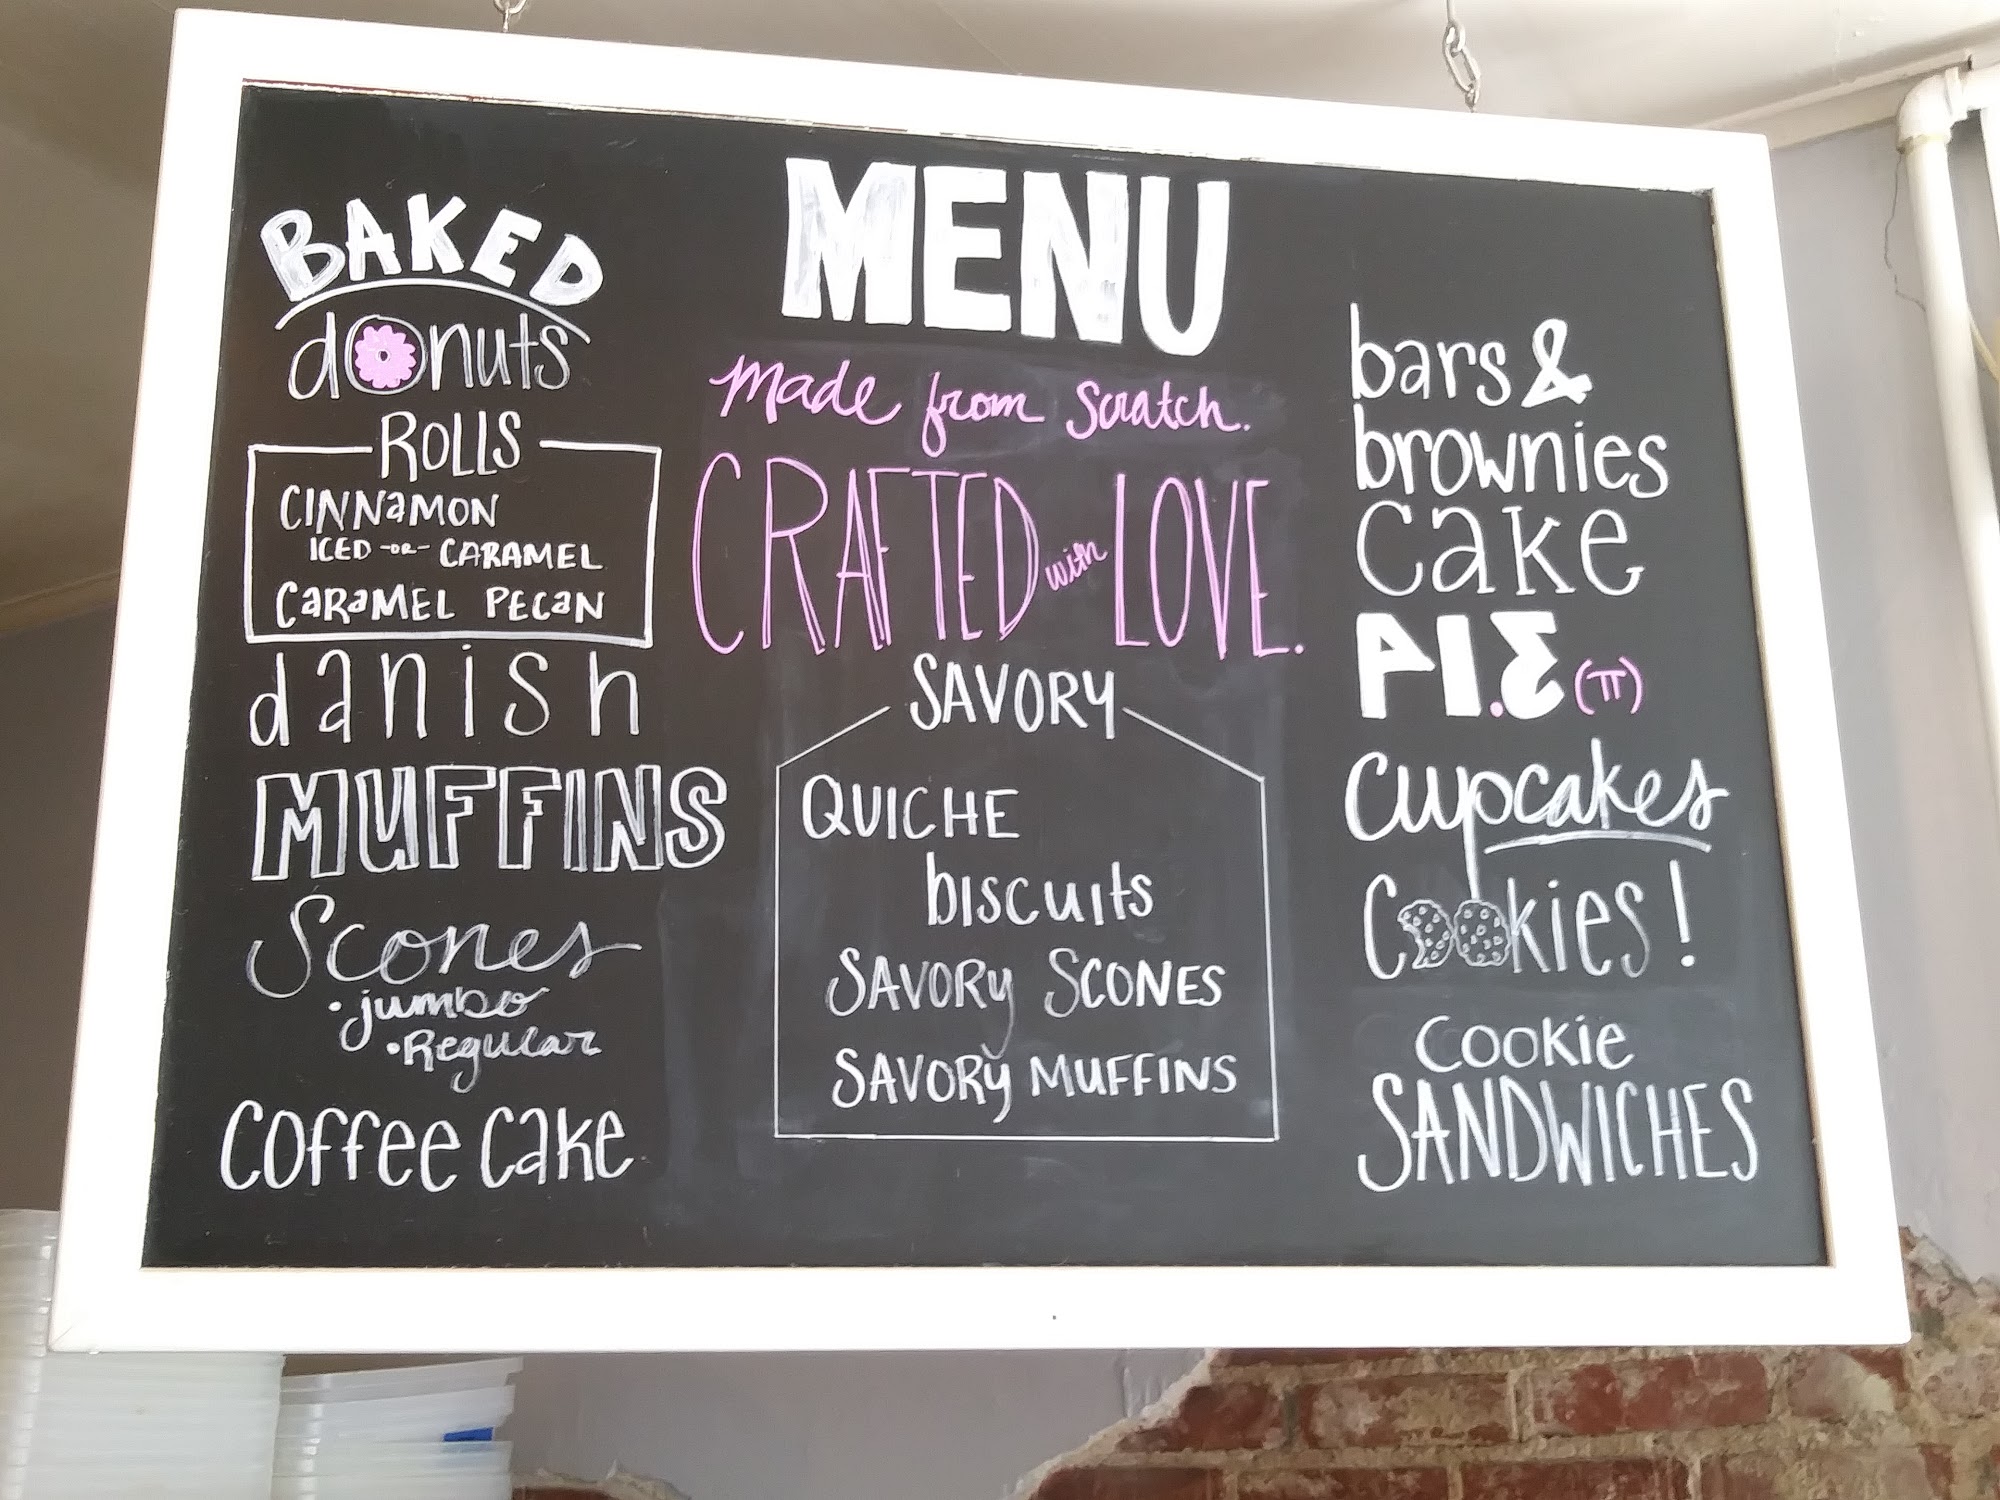 MENU
made from scratch.
CRAFTED with LOVE.
BAKED
donuts
ROLLS
CINNamON
ICED -OR- CARAMEL
CaRaMEL PECaN
danish
MUFFINS
Scones
• jumbo
• Regular
Coffee Cake
SAVORY
QUICHE
biscuits
SAVORY SCONES
SAVORY MUFFINS
bars &
brownies
Cake
PI.E (π)
Cupcakes
Cookies!
Cookie
SANDWICHES